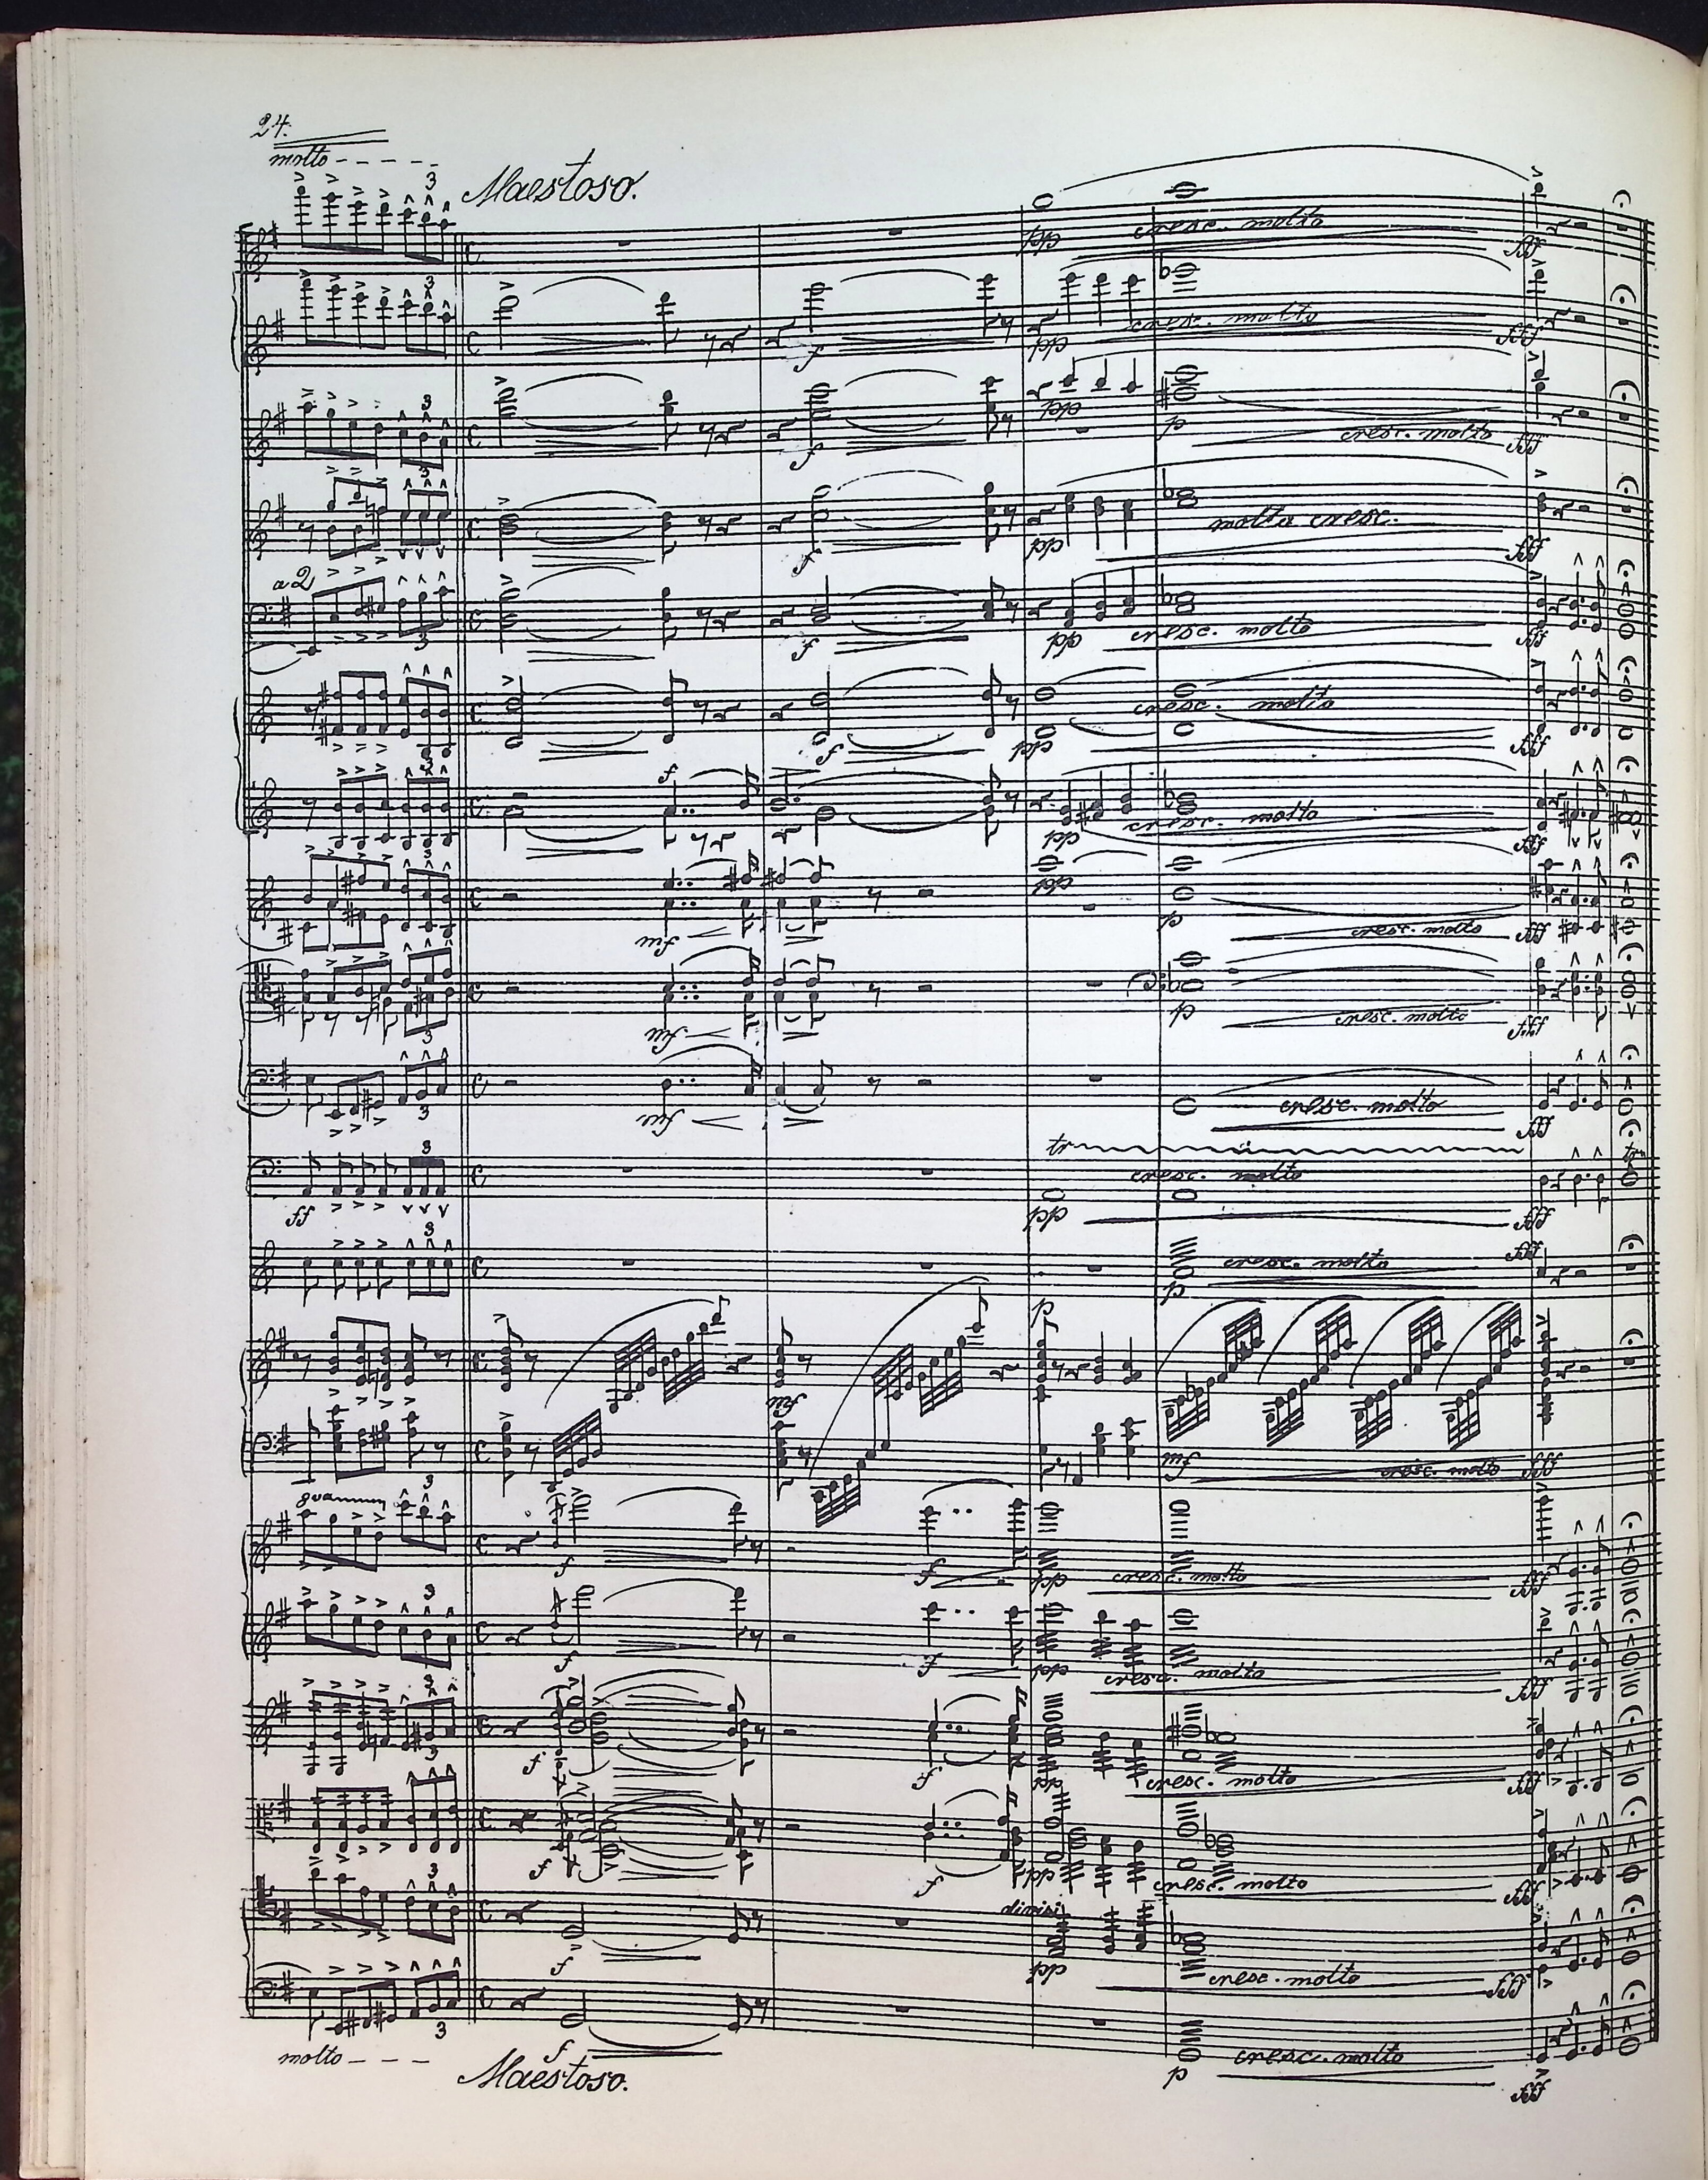 24.
molto - - - - -
Maestoso.
3
pp cresc. molto fff
3
f pp cresc. molto fff
3
f pp p cresc. molto fff
3
f pp molto cresc. fff
a 2
3
f pp cresc. molto fff
3
f pp cresc. molto fff
f pp cresc. molto fff
3
mf pp p cresc. molto fff
3
mf p cresc. molto fff
3
mf cresc. molto fff
3
tr tr
ff pp cresc. molto fff
3
p cresc. molto fff
p
mf
mf cresc. molto fff
8va 3
f f pp cresc. molto fff
3
f f pp cresc. molto fff
3
3
f f pp cresc. molto fff
f f pp cresc. molto fff
3
divisi
f pp cresc. molto fff
3
f p cresc. molto fff
molto - - -
Maestoso.